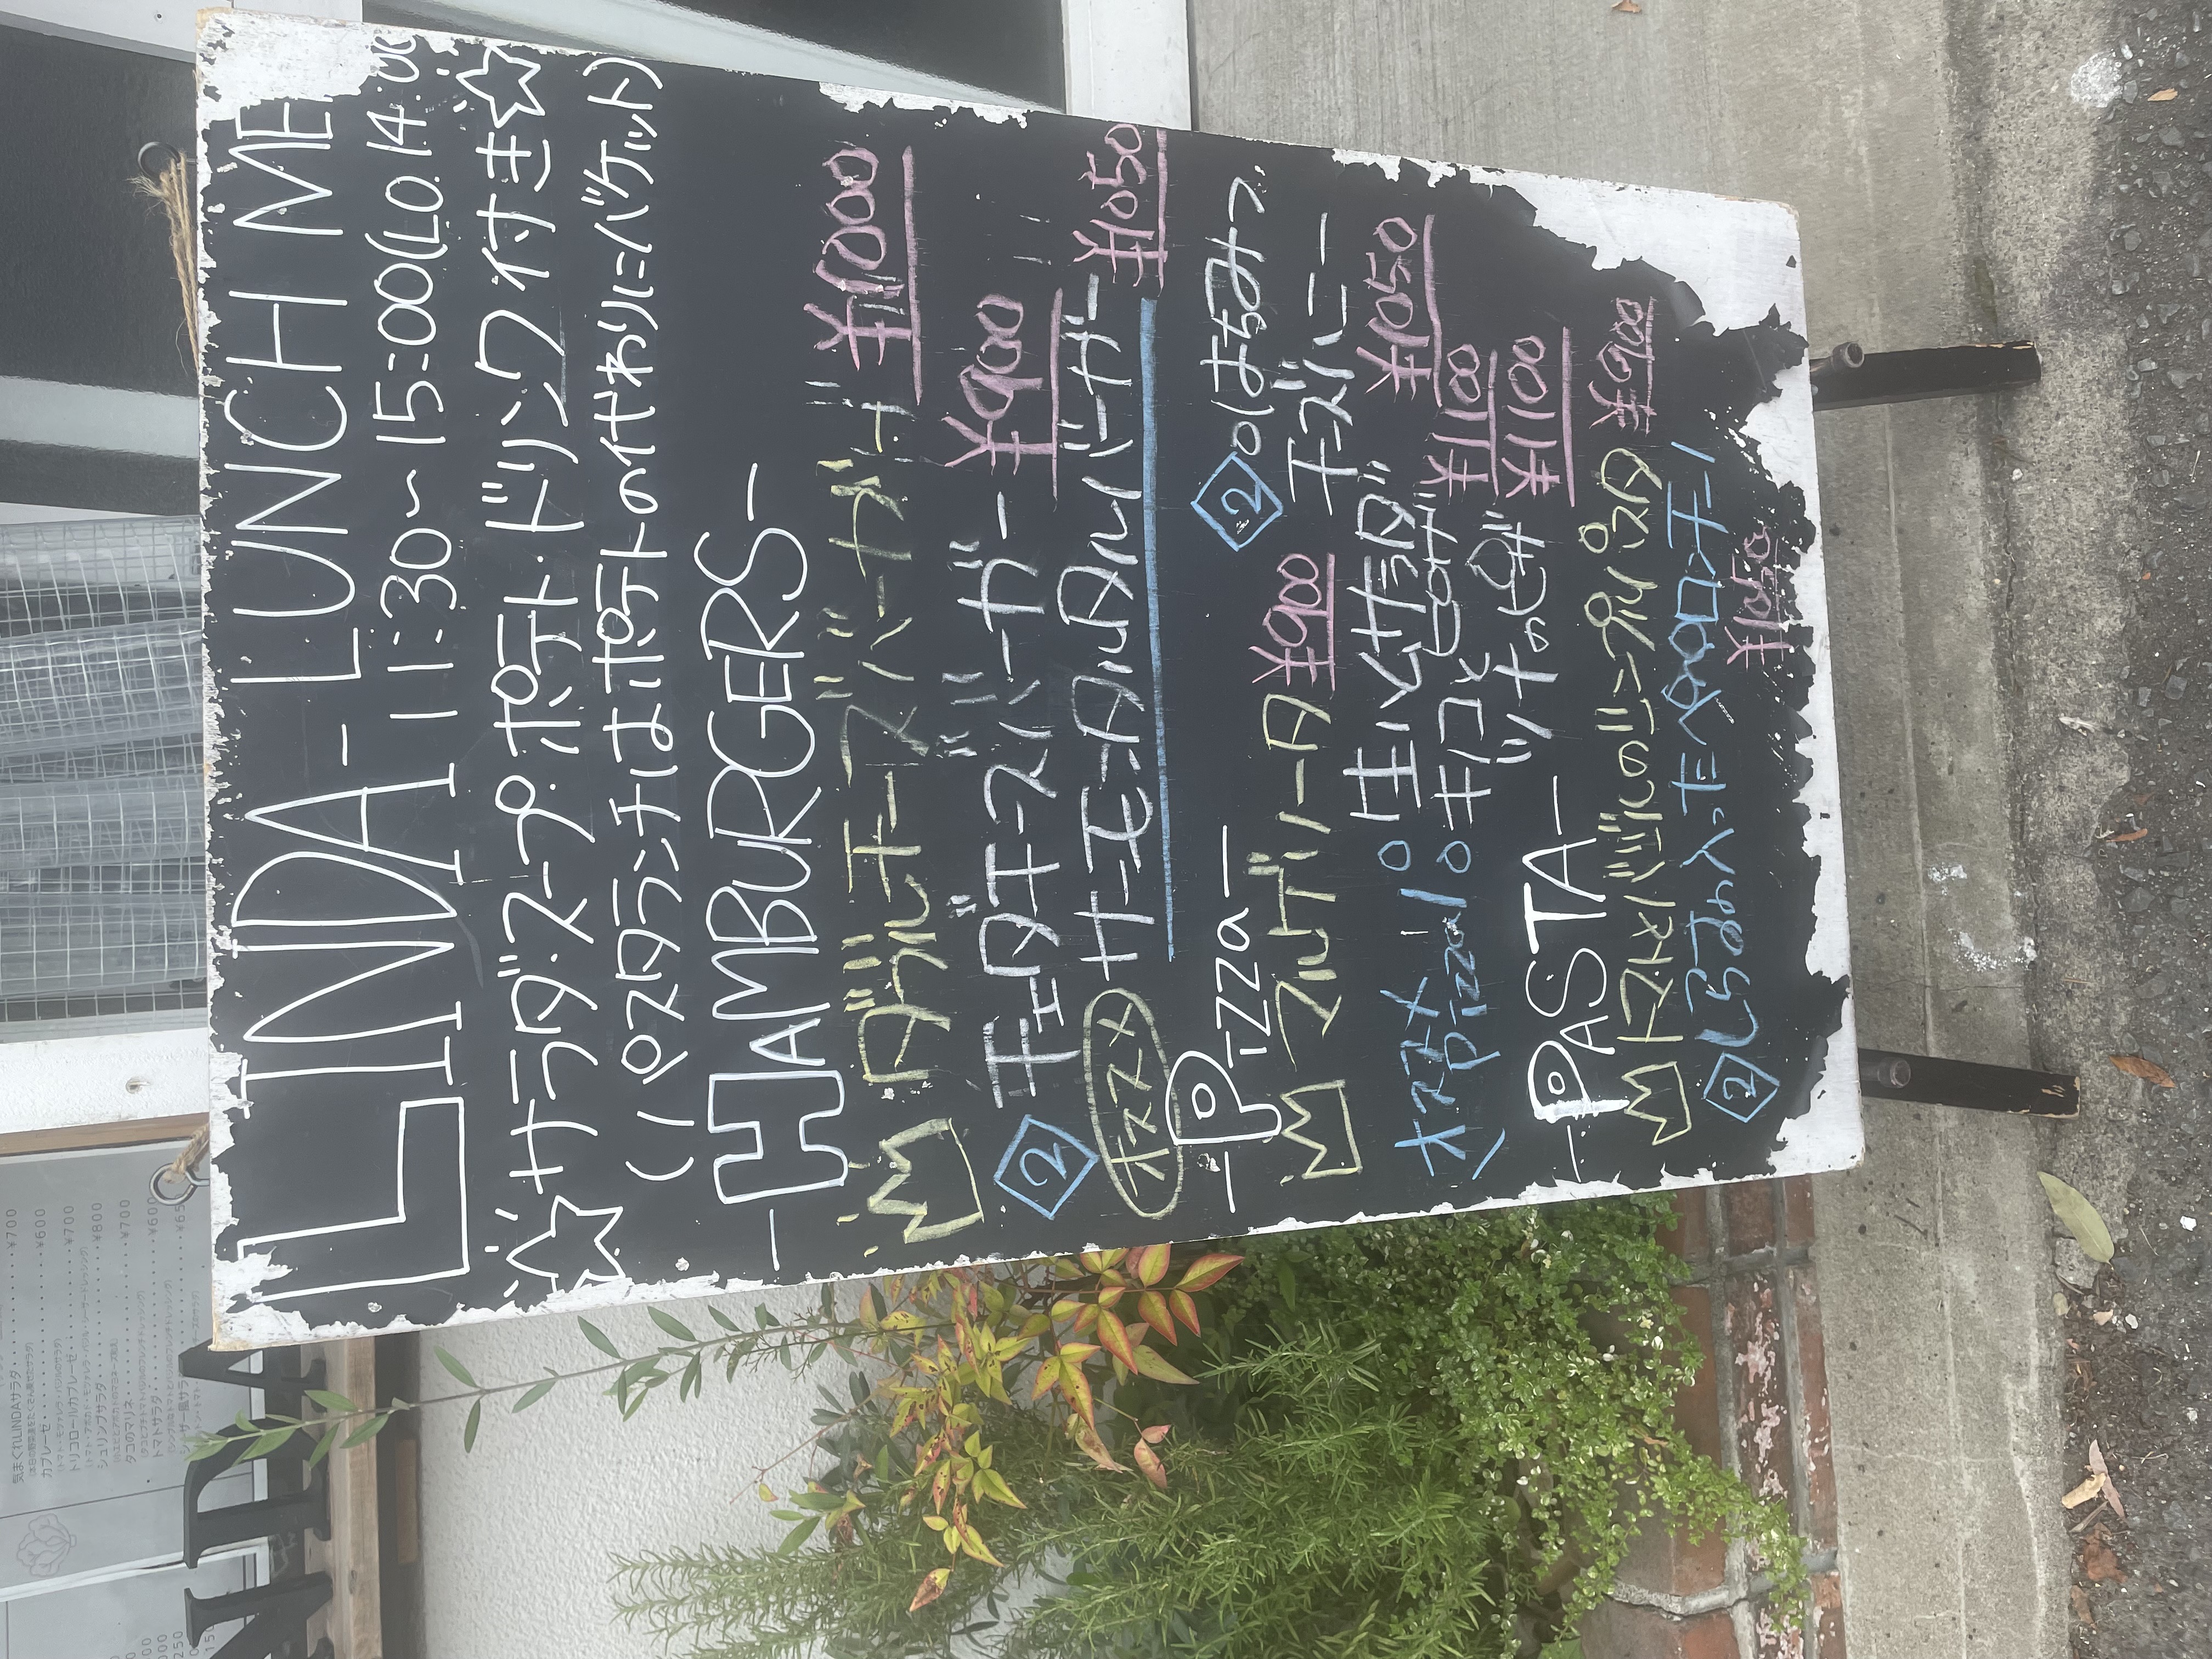 気まぐれLINDAサラダ ¥700
(本日の野菜達をたくさん乗せたサラダ)
カプレーゼ ¥600
(トマト・モツァレラ・バジルのサラダ)
トリコロールカプレーゼ ¥700
(トマト・アボカド・モツァレラ・バジル・シーザードレッシング)
シュリンプサラダ ¥800
(小エビとアボカドのマヨネーズ和え)
タコのマリネ ¥700
(タコとプチトマトバジルのフレンチドレッシング)
トマトサラダ ¥600
(シンプルなトマトとバジルのフレンチドレッシング)
ーザー風サラ ¥65
NDA
LINDA-LUNCH ME
11:30~15:00(LO.14:00
☆サラダ・スープ・ポテト・ドリンク付き☆
(パスタランチはポテトの代わりにバケット)
-HAMBURGERS-
ダブルチーズバーガー ¥1000
2 チェダチーズバーガー ¥900
オススメ サーモンタルタルバーガー ¥1050
-Pizza-
マルゲリータ ¥900
2 はちみつ
チーズハニー
¥1050
オススメ
Pizza!
生ハムサラダ
ピザ ¥1100
キノコと
ツナのピザ ¥1100
-PASTA-
トマトとバジルのシンプルパスタ ¥900
2 しらすの入ったペペロンチーノ
¥1050